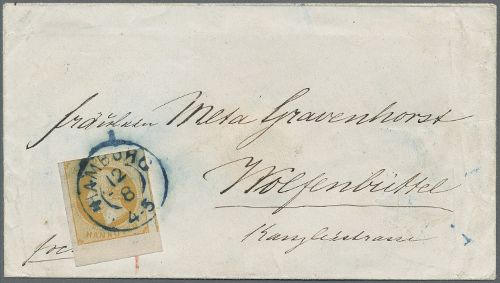 Fräulein Meta Gravenhorst
Wolfenbüttel
Kanzleistrasse
HAMBURG
12
8
4-5
HANNO